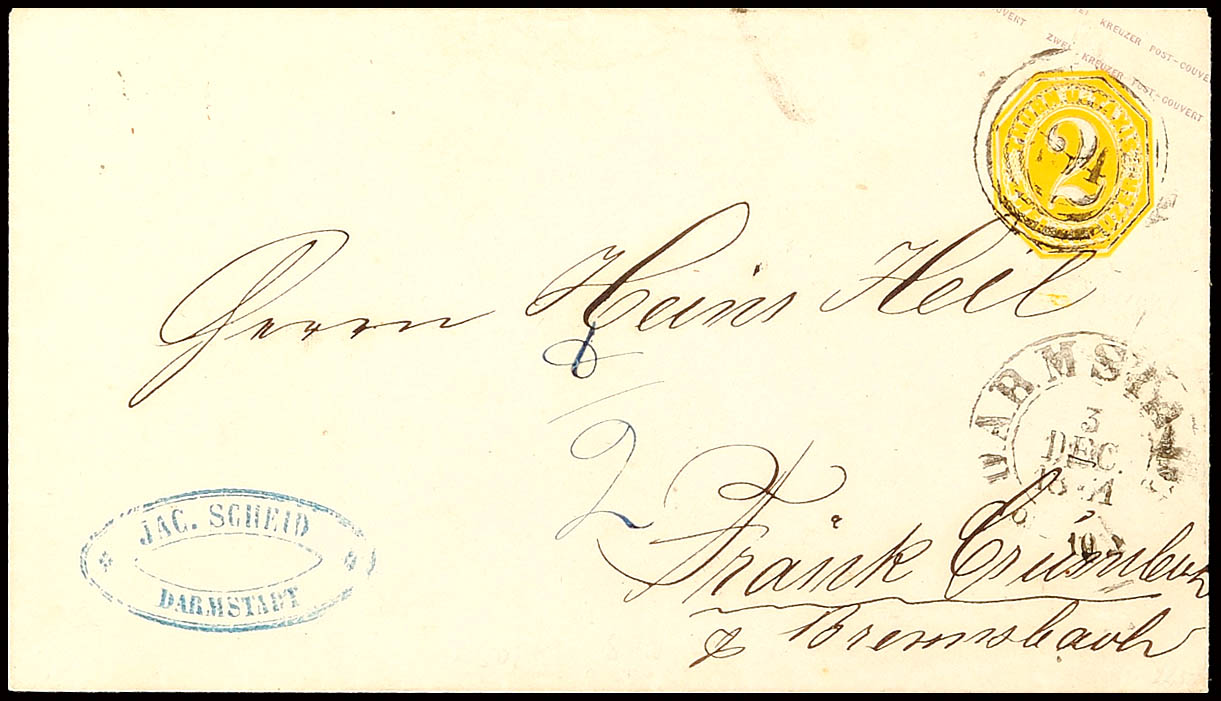 KREUZER POST-COUVE
ZWEI-KREUZER POST-COUVERT
2
Herrn Heinr Heil
2
Fränk Crumbach
p Bremsbach
DARMSTA
3
DEC.
10
JAC. SCHEID
DARMSTADT